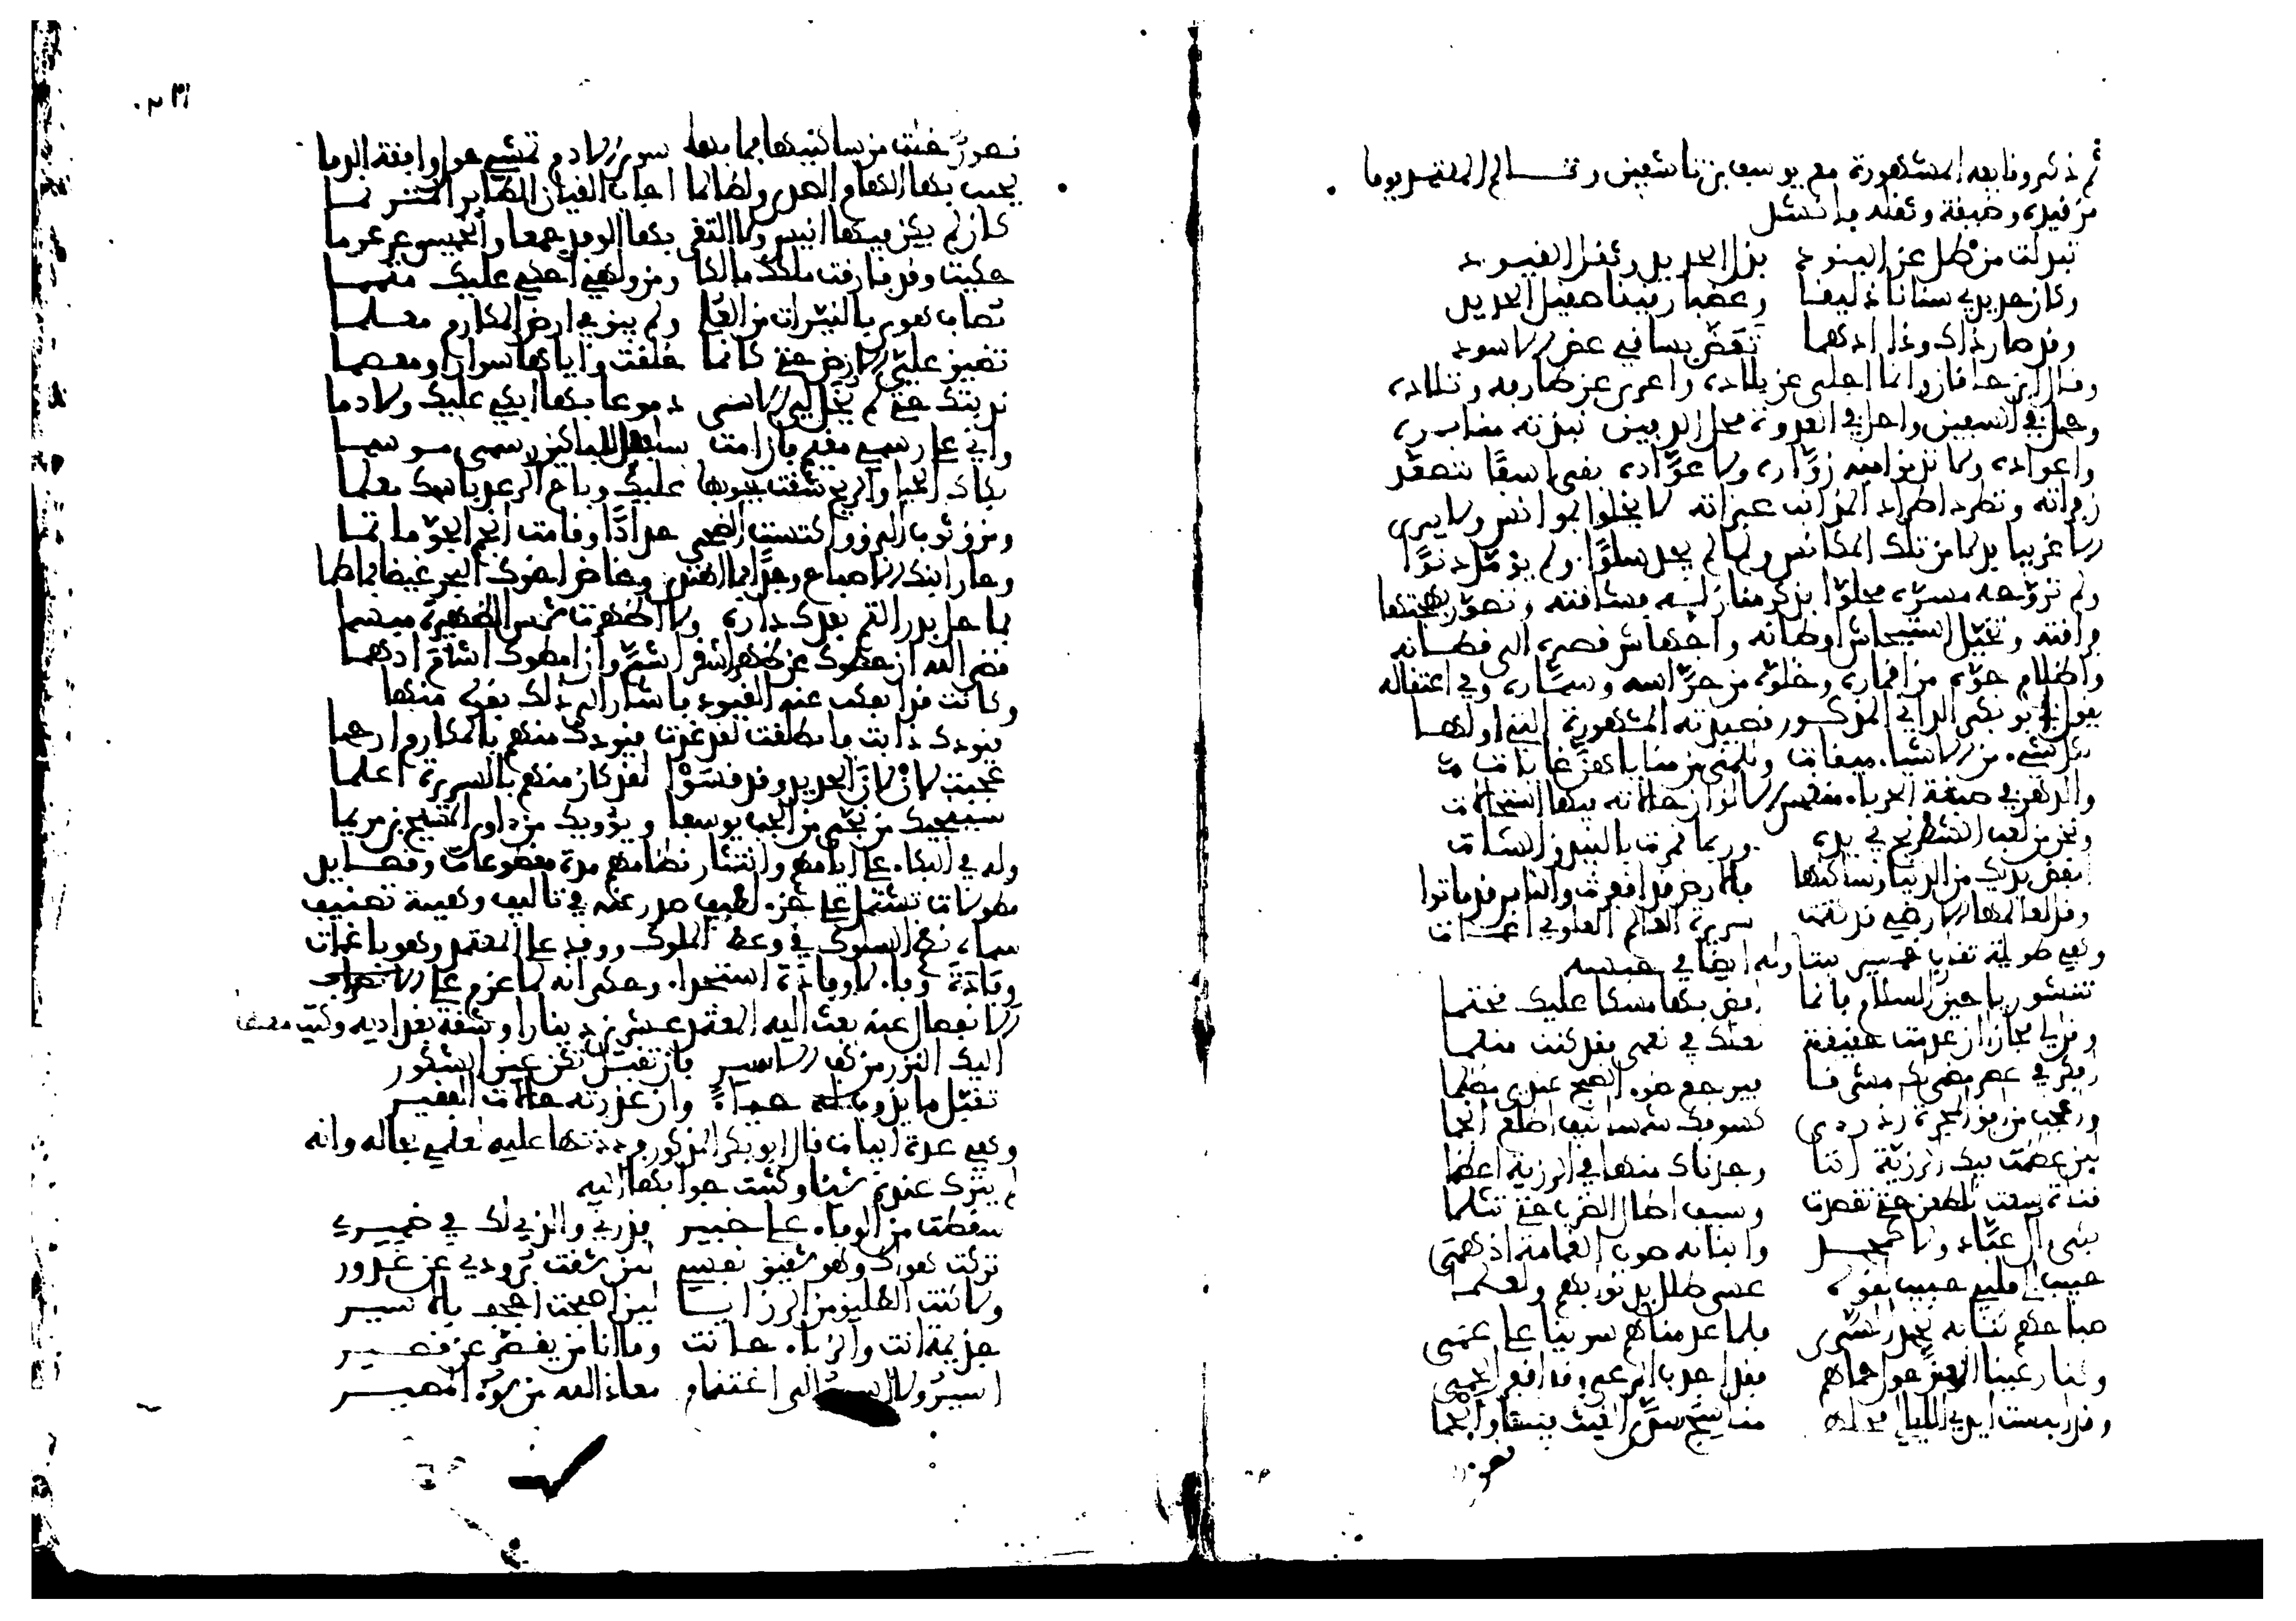 ثم ذكر وقايعه المشهورة مع يوسف بن تاشفين وتـــالم المعتمد يوما
من قيده وضيقه وثقله فانشد
تبدلت من ظل عز البنود بذل الحديد وثقل القيود
وكان حديدي سنانا ذليقا وعضبا رقيقا صقيل الحديد
وقد صار ذاك وذا ادهما يعض بساقي عض الاسود
وقال ابن خاقان ولما اجلي عن بلاده واعري عن طارفه وتلاده
وحمل في السفين واحل في العدوة محل الدفين تندبه منابره
واعواده ولا يدنو منه زواره ولا عواده بقي اسفا تتصعد
زفراته وتطرد اطراد المذانب عبراته لا يخلوا بموانس ولا يرى
الا غريبا بدلا من تلك المكانس ولما لم يجد سلوا ولم يؤمل دنوا
ولم تر وجه مسرة مجلوا تذكر منازله فشاقته وتصور بهجتها
فراقته وتخيل استيحاش اوطانه واجهاش قصره الى قطانه
واظلام جوه من اقماره وخلوه من حراسه وسماره وفي اعتقاله
يقول ابو بكر الداني المذكور قصيدته المشهورة التي اولها
لكل شيء من الاشياء ميقات وللمنى من مناياهن غايات
والدهر في صبغة الحرباء منغمس الوان حالاته فيها استحالات
ونحن من لعب الشطرنج في يده وربما قمرت بالبيدق الشاة
انفض يديك من الدنيا وساكنها فالارض قد اقفرت والناس قد ماتوا
وقل لعالمها الارضي قد كتمت سريرة العالم العلوي اغمات
وهي طويلة تقارب خمسين بيتا وله ايضا في حبسه
تنشق رياحين السلام فانما افض بها مسكا عليك مختما
وقل لي مجازا ان عدمت حقيقة لعلك في نعمى فقد كنت منعما
افكر في عصر مضى لك مشرقا فيرجع ضوء الصبح عندي مظلما
واعجب من افق المجرة اذ راى كسوفك شمسا كيف اطلع انجما
لئن عظمت فيك الرزية اننا وجدناك منها في الرزية اعظما
قناة سعت للطعن حتى تقصدت وسيف اطال الضرب حتى تثلما
بكى آل عباد ولا كمحمـــد وابنائه صوب الغمامة اذ همى
حبيب الى قلبي حبيب لقوله عسى طلل يدنو بهم ولعلما
صباحهم كنا به نحمد السرى فلما عدمناهم سرينا على عمى
وكنا رعينا العز حول حماهم فقد اجدب المرعى وقد اقفر الحمى
وقد البست ايدي الليالي محلهم مناسج سدى الغيث فيها والحما
قصور
قصور خلت من ساكنيها فما بها سوى الادم تمشي حول واقفة الدما
يجيب بها الهام الصدى ولطالما اجاب القيان الطائر المترنما
كان لم يكن فيها انيس ولا التقى بها الوفد جمعا والخميس عرمرما
حكيت وقد فارقت ملكك مالكا ومن ولهي احكي عليك متمما
مصاب هوى بالنيرات من العلا ولم يبق في ارض المكارم معلما
تضيق علي الارض حتى كانما خلقت واياها سوارا ومعصما
ندبتك حتى لم يخل لي الاسى دموعا بها ابكي عليك ولا دما
واني على رسمي مقيم فان امت ساجعل للباكين رسمي موسما
بكاك الحيا والريح شقت جيوبها عليك وناح الرعد باسمك معلما
ومزق ثوب البرق واكتست الضحى حدادا وقامت انجم الجو ماتما
وحار ابنك الاصباح وجدا فما اهتدى وغاض اخوك البحر غيضا فما طما
فما حل بدر التم بعدك دارة ولا اظهرت شمس الظهيرة مبسما
قضى الله ان حطوك عن ظهر اشقر اشم وان امطوك اشام ادهما
وكانت قد انفكت عنه القيود فاشار الى ذلك بقوله منها
قيودك ذابت فانطلقت لقد غدت قيودك منهم بالمكارم ارحما
عجبت لان لان الحديد وقد قسوا لقد كان منهم بالسريرة اعلما
سينجيك من نجى من الجب يوسفا ويؤويك من آوى المسيح بن مريما
وله في البكاء على ايامهم وانتثار نظامهم عدة مقطوعات وقصايد
مطولات تشتمل على جزء لطيف صدر عنه في تاليف وهيئة تصنيف
سماه نظم السلوك في وعظ الملوك ووفد على المعتمد وهو باغمات
وفادة وفاء لا وفادة استجداء وحكى انه لما عزم على الانصراف
الانفصال عنه بعث اليه المعتمد عشرين دينارا وشقة بغدادية وكتب معها
اليك النزر من كف الاسير فان تقبل تكن عين الشكور
تقبل ما يذوب له حياء وان عذرته حالات الفقير
وهي عدة ابيات قال ابو بكر المذكور فرددتها عليه لعلمي بحاله وانه
لم يترك عنده شيئا وكتبت جوابها اليه
سقطت من الوفاء على خبير فذرني والذي لك في ضميري
تركت هواك وهو شقيق نفسي لئن شقت برودي عن غدور
ولا كنت الطليق من الرزايا لئن اصبحت اجحف بالاسير
جذيمة انت والزباء خانت وما انا من يقصر عن قصير
اسير ولا اسير الى اغتنام معاذ الله من سوء المصير